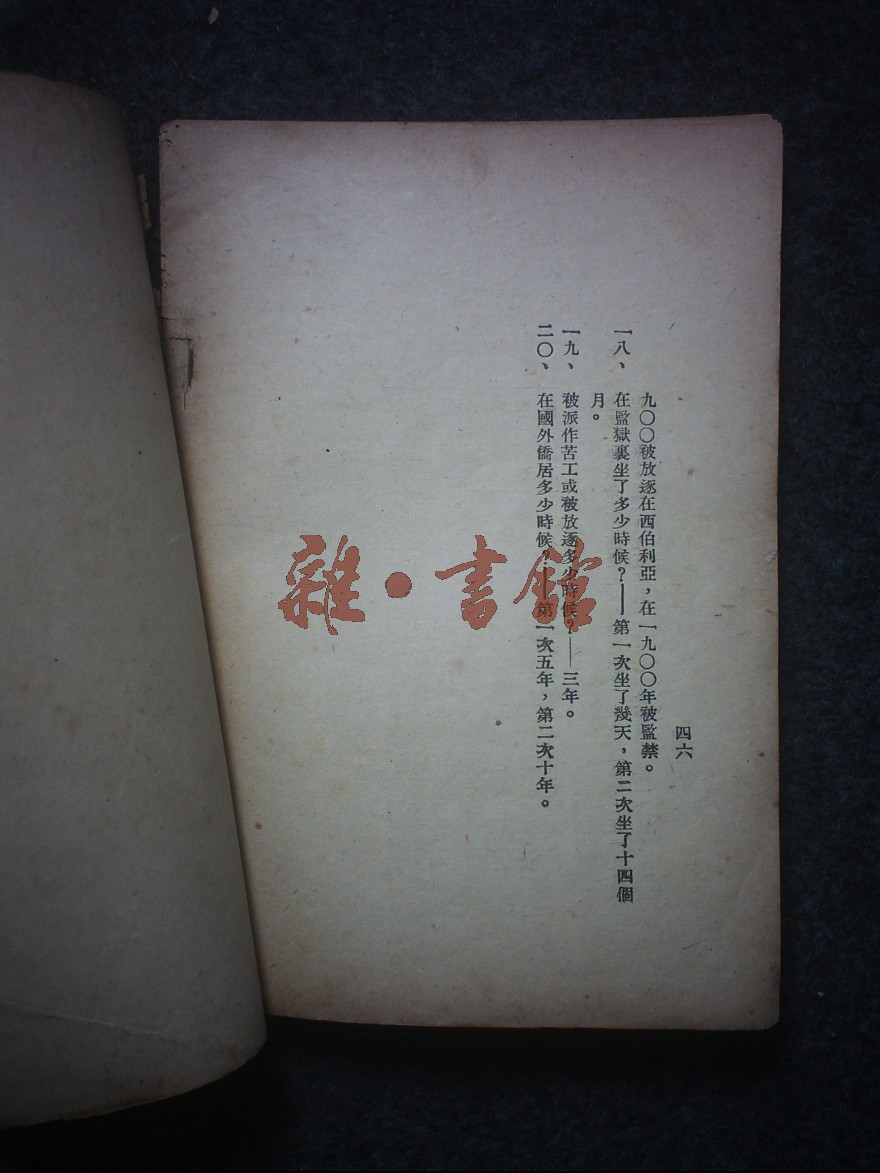 四六
九〇〇被放逐在西伯利亞，在一九〇〇年被監禁。
一八、在監獄裏坐了多少時候？——第一次坐了幾天，第二次坐了十四個
月。
一九、被派作苦工或被放逐多少時候？——三年。
二〇、在國外僑居多少時候？——第一次五年，第二次十年。
雜·書館